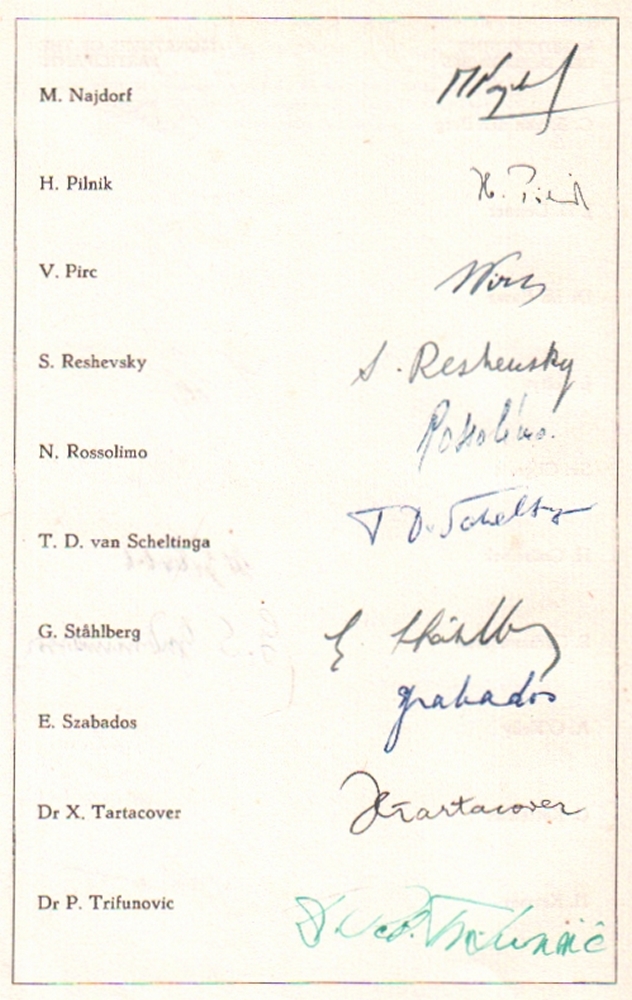 M. Najdorf
H. Pilnik H. Pilnik
V. Pirc VPirc
S. Reshevsky S. Reshevsky
N. Rossolimo Rossolimo.
T. D. van Scheltinga T D. Schelty
G. Ståhlberg G. Ståhlberg
E. Szabados Szabados
Dr X. Tartacover XTartacover
Dr P. Trifunovic Dr P. Trifunović